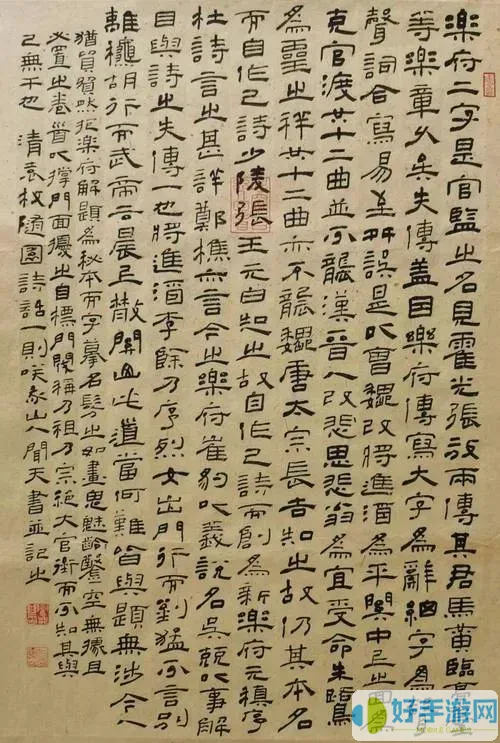 樂府二字是官監之名見霍光張放兩傳其君馬黃臨高臺
等樂章久矣失傳蓋因樂府傳寫大字為辭細字為
聲詞合寫易至舛誤是以曹魏改將進酒為平關中上之回為
克官渡共十二曲並不襲漢晉人改悲思悲翁為宣受命朱鷺
為靈之祥共十二曲亦不襲魏唐太宗長吉知之故仍其本名
而自作己詩少陵張王元白知之故自作己詩而創為新樂府元稹序
杜詩言之甚詳鄭樵亦言今之樂府崔豹以義說名吳兢以事解
目與詩之失傳一也將進酒李餘乃序烈女出門行而劉猛不言別
離秋胡行而武帝云晨上散關山此道當何難皆與題無涉今人
猶貿貿然抱樂府解題為秘本而字摹句仿之如畫鬼魅鑿空無據且
必置之卷首以撐門面猶之自標門閥稱乃祖乃宗絕大官銜而不知其與
己無干也 清袁枚隨園詩話一則 山人聞天書並記之
好手游网